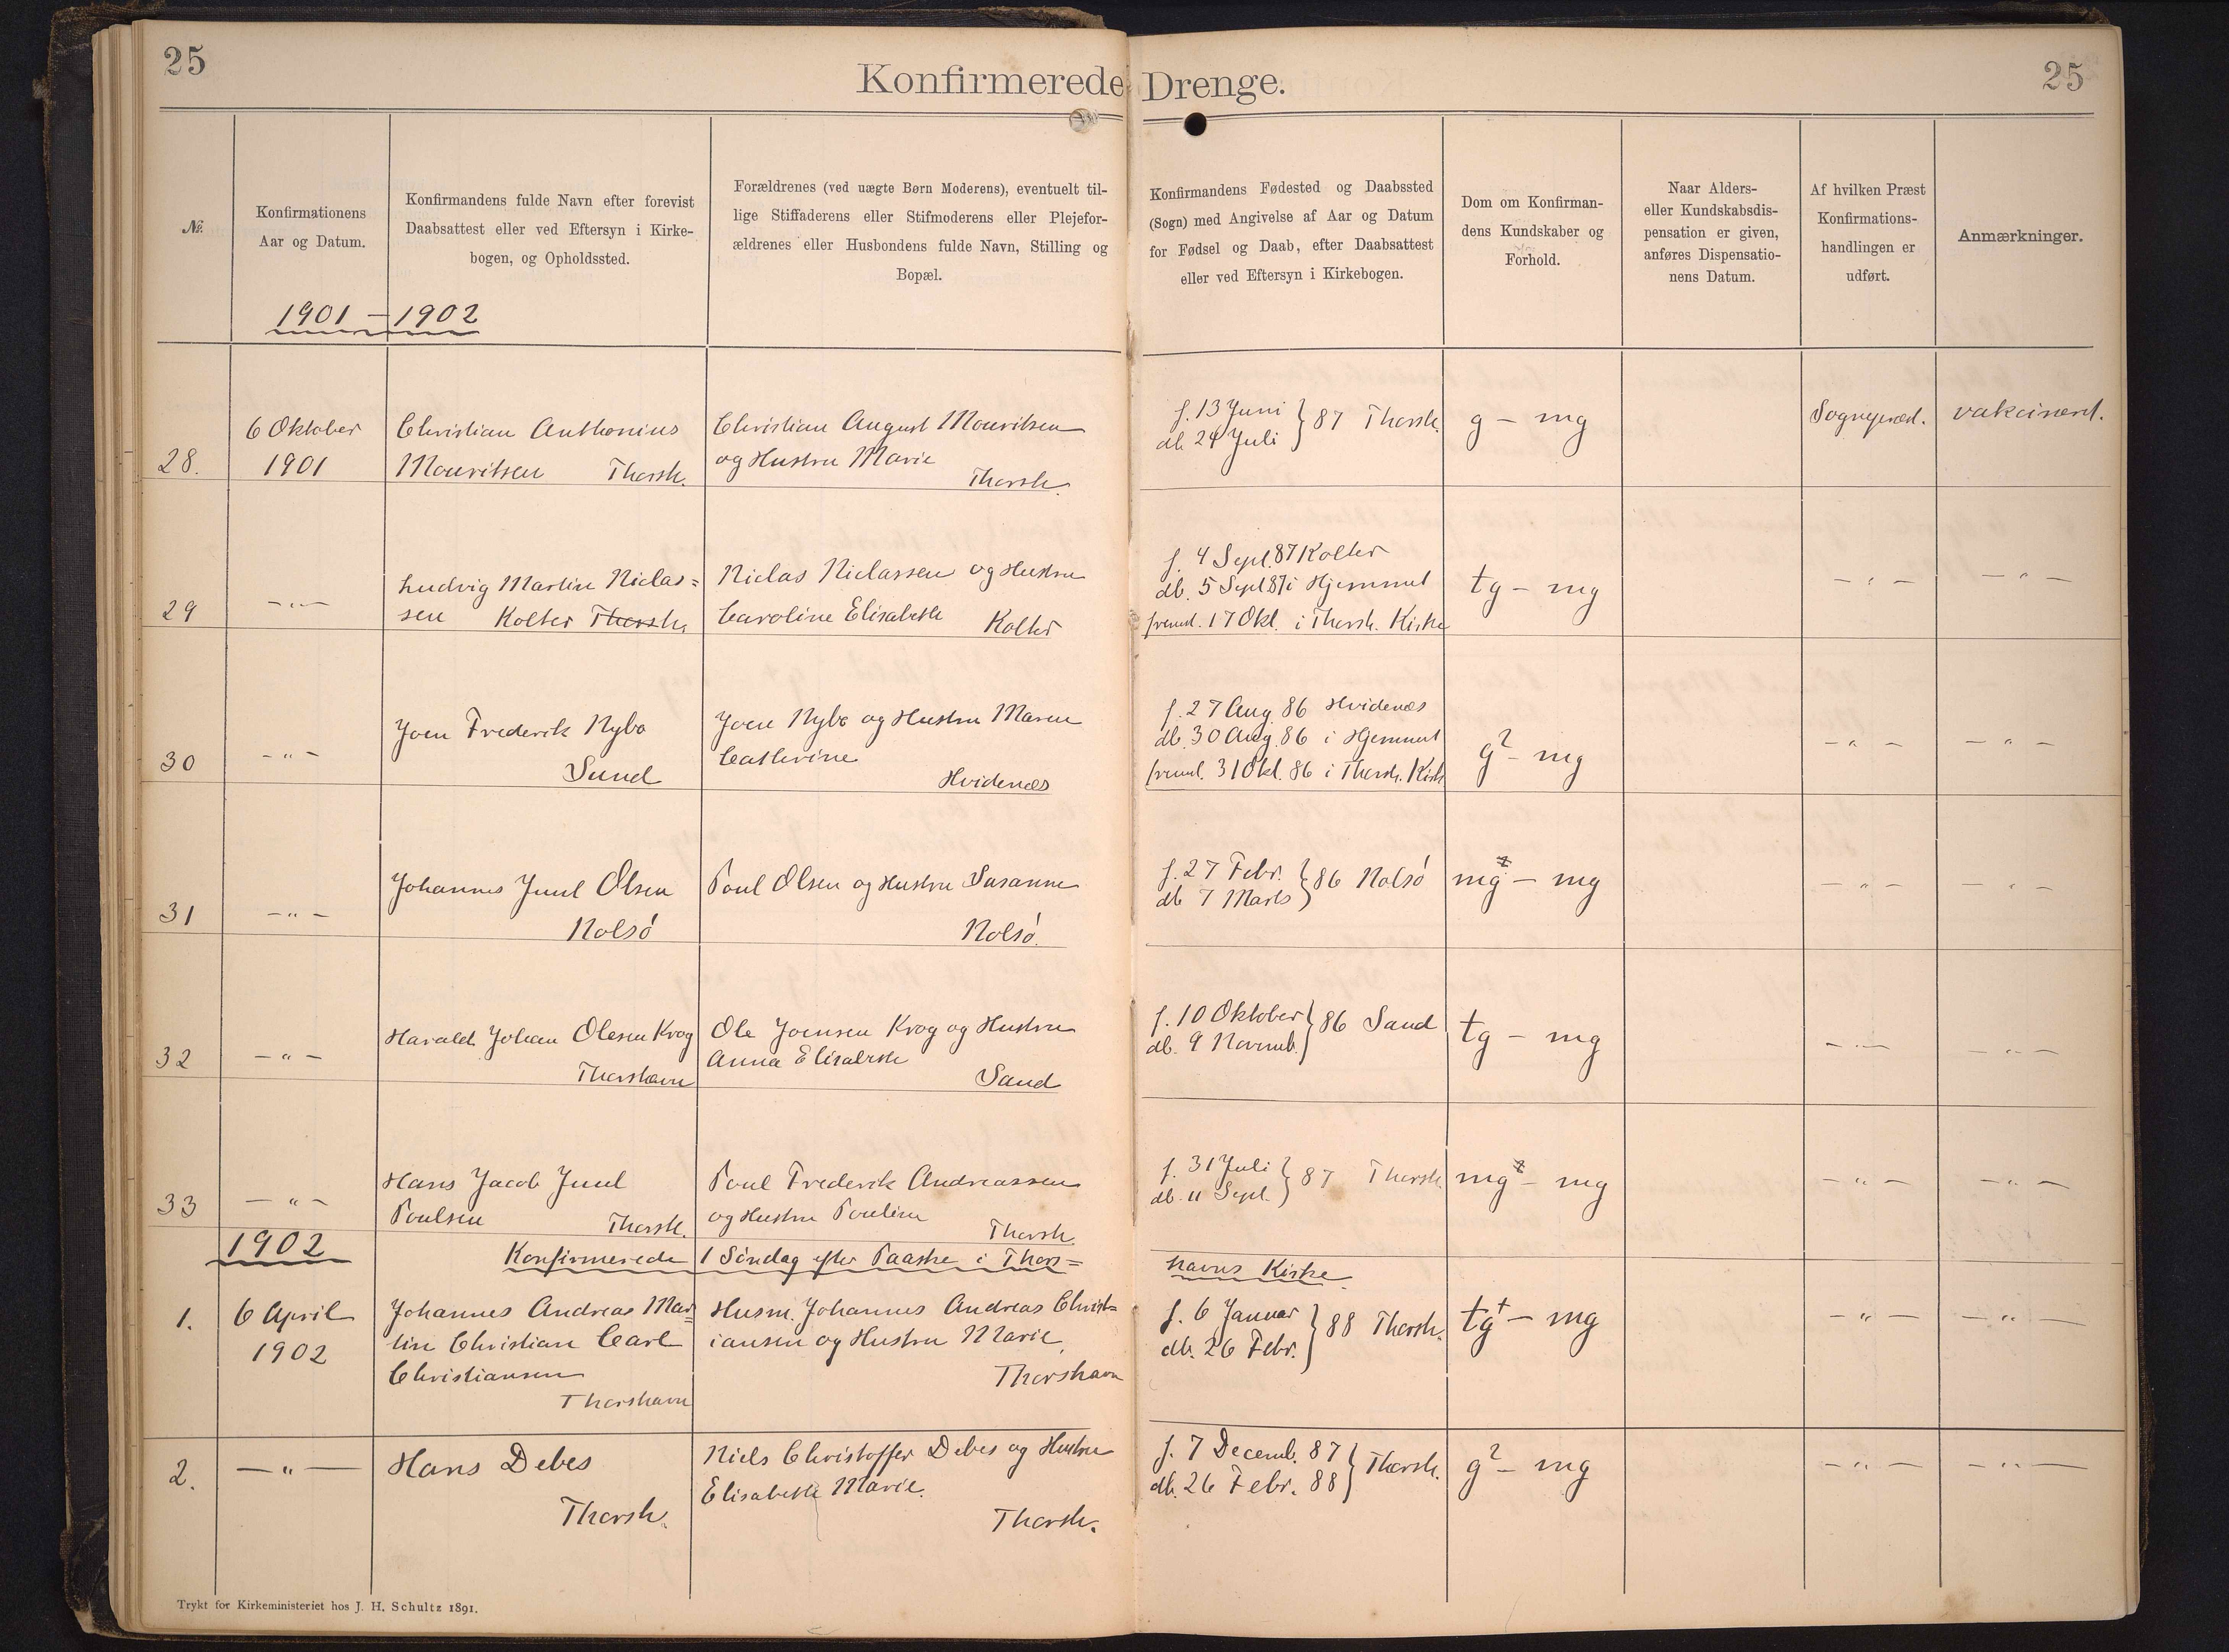 25
Konfirmerede Drenge.
25
№
Konfirmationens
Aar og Datum.
Konfirmandens fulde Navn efter forevist
Daabsattest eller ved Eftersyn i Kirke-
bogen, og Opholdssted.
Forældrenes (ved uægte Børn Moderens), eventuelt til-
lige Stiffaderens eller Stifmoderens eller Plejefor-
ældrenes eller Husbondens fulde Navn, Stilling og
Bopæl.
Konfirmandens Fødested og Daabssted
(Sogn) med Angivelse af Aar og Datum
for Fødsel og Daab, efter Daabsattest
eller ved Eftersyn i Kirkebogen.
Dom om Konfirman-
dens Kundskaber og
Forhold.
Naar Alders-
eller Kundskabsdis-
pensation er given,
anføres Dispensatio-
nens Datum.
Af hvilken Præst
Konfirmations-
handlingen er
udført.
Anmærkninger.
1901 - 1902
28.
6 Oktober
1901
Christian Anthonius
Mouritsen Thorsh.
Christian August Mouritsen
og Hustru Marie
Thorsh.
f. 13 Juni
db. 24 Juli } 87 Thorsh.
g - mg
Sognepræst.
vakcineret.
29
- " -
Ludvig Martin Niclas=
sen Kolter Thorsh.
Niclas Niclassen og Hustru
Caroline Elisabeth Kolter
f. 4 Sept. 87 Kolter
db. 5 Sept 87 i Hjemmet
freml. 17 Okt. i Thorsh. Kirke
tg - mg
- " -
- " -
30
- " -
Joen Frederik Nybo
Sund
Joen Nybo og Hustru Maren
Cathrine
Hvidenæs
f. 27 Aug. 86 Hvidenæs
db. 30 Aug. 86 i Hjemmet
freml. 31 Okt. 86 i Thorsh. Kirk
g? - mg
- " -
- " -
31
- " -
Johannes Juul Olsen
Nolsö
Poul Olsen og Hustru Susanne
Nolsö.
f. 27 Febr.
db 7 Marts } 86 Nolsö
mg - mg
- " -
- " -
32
- " -
Harald Johan Olesen Krog
Thorshavn
Ole Joensen Krog og Hustru
Anna Elisabeth
Sand
f. 10 Oktober
db. 9 Novemb. } 86 Sand
tg - mg
- " -
- " -
33
- " -
Hans Jacob Juul
Poulsen Thorsh.
Poul Frederik Andreassen
og Hustru Pouline
Thorsh.
f. 31 Juli
db. 11 Sept. } 87 Thorsh.
mg - mg
- " -
- " -
1902
Konfirmerede 1 Söndag efter Paaske i Thors=
havns Kirke.
1.
6 April
1902
Johannes Andreas Mar=
tin Christian Carl
Christiansen
Thorshavn
Husm. Johannes Andreas Christ=
iansen og Hustru Marie,
Thorshavn
f. 6 Januar
db. 26 Febr. } 88 Thorsh.
tg+ - mg
- " -
- " -
2.
- " -
Hans Debes
Thorsh.
Niels Christoffer Debes og Hustru
Elisabeth Marie.
Thorsh.
f. 7 Decemb. 87
db. 26 Febr. 88 } Thorsh.
g? - mg
- " -
- " -
Trykt for Kirkeministeriet hos J. H. Schultz 1891.